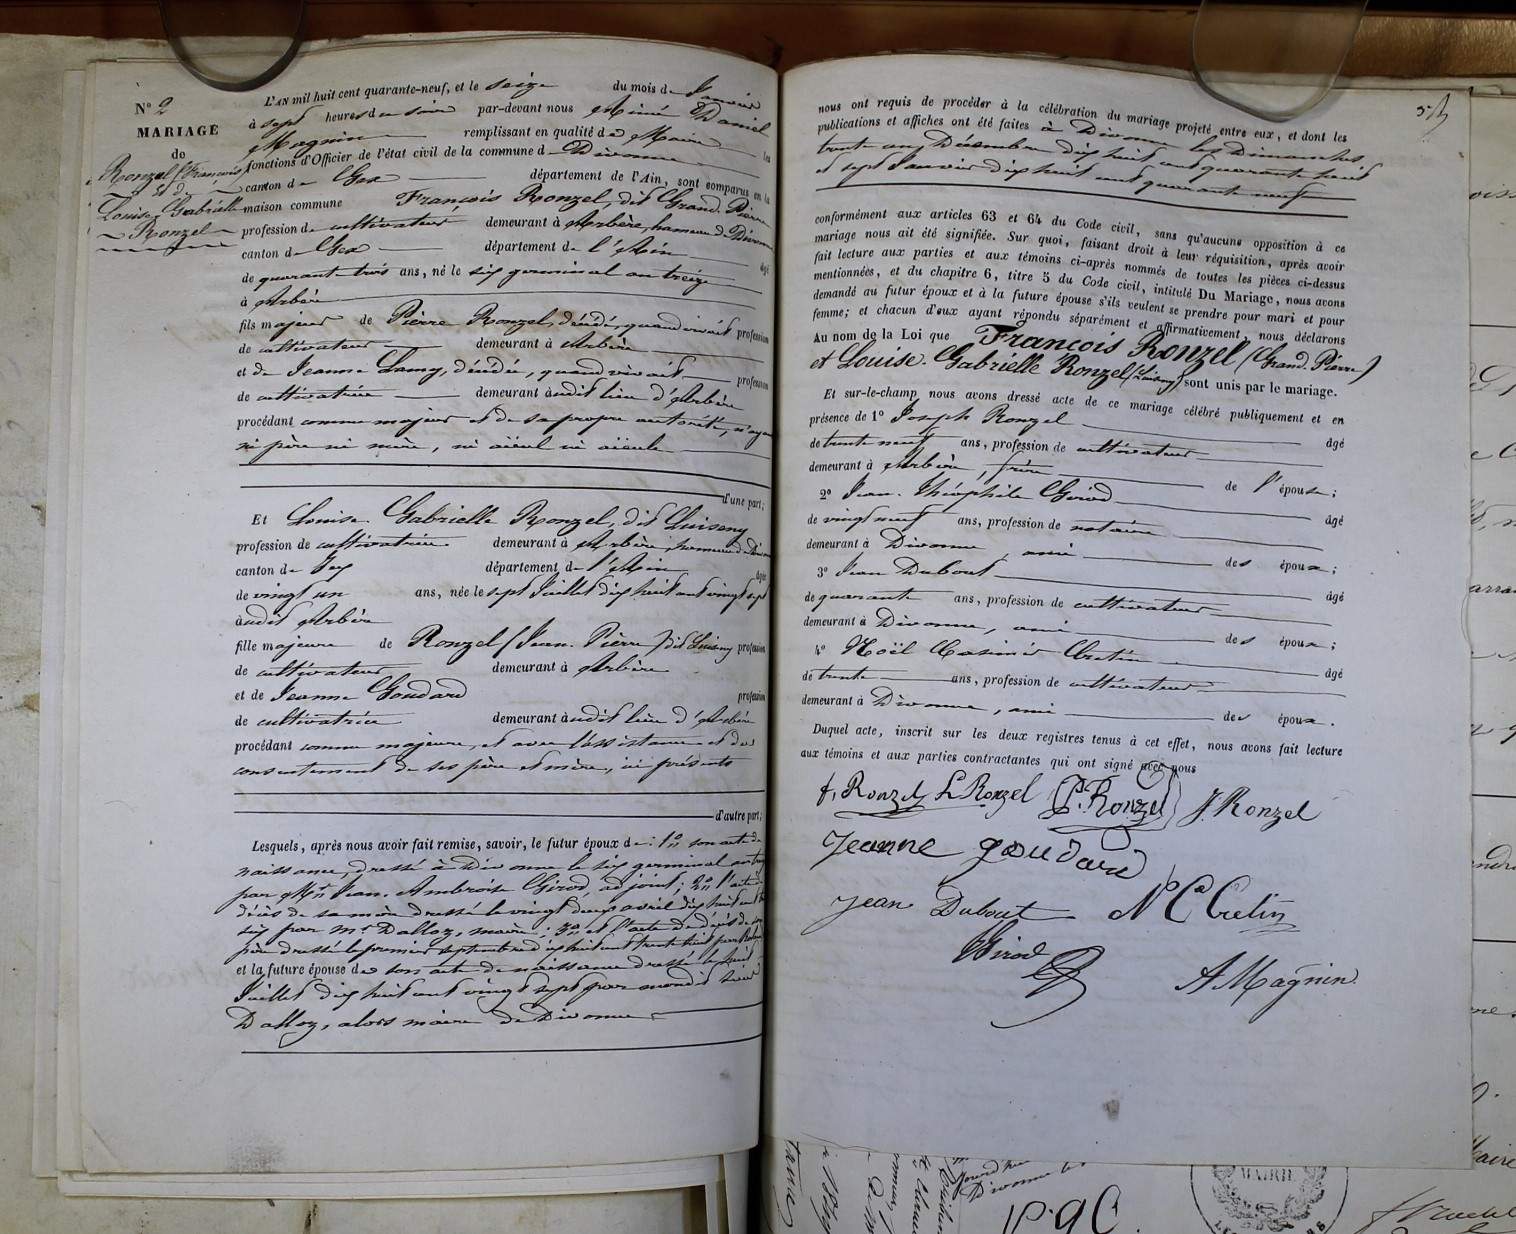 N° 2
MARIAGE
de
Ronzel (François)
et de
Louise Gabrielle
Ronzel
L'AN mil huit cent quarante-neuf, et le seize du mois de Janvier
à sept heures du soir par-devant nous Aimé Daniel
Magnin remplissant en qualité de Maire les
fonctions d'Officier de l'état civil de la commune de Divonne
canton de Gex département de l'Ain, sont comparus en la
maison commune François Ronzel, dit Grand Pierre
profession de cultivateur demeurant à Arbère, hameau de Divonne
canton de Gex département de l'Ain âgé
de quarant trois ans, né le six germinal an treize
à Arbère
fils majeur de Pierre Ronzel, décédé, quand vivait profession
de cultivateur demeurant à Arbère
et de Jeanne Lamy, décédée, quand vivait profession
de cultivatrice demeurant audit lieu d'Arbère
procédant comme majeur et de sa propre autorité, n'ayant
ni père ni mère, ni aïeul ni aïeule
d'une part;
Et Louise Gabrielle Ronzel, dit Luiseny
profession de cultivatrice demeurant à Arbère, hameau de Divonne
canton de Gex département de l'Ain âgée
de vingt un ans, née le sept Juillet dix huit cent vingt sept
audit Arbère
fille majeure de Ronzel (Jean-Pierre) dit Luiseny profession
de cultivateur demeurant à Arbère
et de Jeanne Goudard profession
de cultivatrice demeurant audit lieu d'Arbère
procédant comme majeure, et avec l'assistance et du
consentement de ses père et mère, ici présents
d'autre part;
Lesquels, après nous avoir fait remise, savoir, le futur époux de: 1° son acte de
naissance, dressé à Divonne le six germinal an treize
par Mr Jean Ambroise Girod adjoint; 2° l'acte de
décès de sa mère dressé le vingt deux avril dix huit cent
six par Mr Dalloz, maire; 3° et l'acte de décès de son
père dressé le premier septembre dix huit cent trente huit par
et la future épouse de son acte de naissance dressé le huit
Juillet dix huit cent vingt sept par mondit sieur
Dalloz, alors maire de Divonne
nous ont requis de procéder à la célébration du mariage projeté entre eux, et dont les
publications et affiches ont été faites à Divonne les Dimanches
trente un Décembre dix huit cent quarante huit
et sept Janvier dix huit cent quarante neuf
conformément aux articles 63 et 64 du Code civil, sans qu'aucune opposition à ce
mariage nous ait été signifiée. Sur quoi, faisant droit à leur réquisition, après avoir
fait lecture aux parties et aux témoins ci-après nommés de toutes les pièces ci-dessus
mentionnées, et du chapitre 6, titre 5 du Code civil, intitulé Du Mariage, nous avons
demandé au futur époux et à la future épouse s'ils veulent se prendre pour mari et pour
femme; et chacun d'eux ayant répondu séparément et affirmativement, nous déclarons
Au nom de la Loi que François Ronzel (Grand Pierre)
et Louise Gabrielle Ronzel (Luiseny) sont unis par le mariage.
Et sur-le-champ nous avons dressé acte de ce mariage célébré publiquement et en
présence de 1° Joseph Ronzel âgé
de trente neuf ans, profession de cultivateur
demeurant à Arbère, frère de l'épouse;
2° Jean-Théophile Girod âgé
de vingt neuf ans, profession de notaire
demeurant à Divonne, ami des époux;
3° Jean Dubout âgé
de quarante ans, profession de cultivateur
demeurant à Divonne, ami des époux;
4° Noël Casimir Cretin âgé
de trente ans, profession de cultivateur
demeurant à Divonne, ami des époux.
Duquel acte, inscrit sur les deux registres tenus à cet effet, nous avons fait lecture
aux témoins et aux parties contractantes qui ont signé avec nous
f. Ronzel L Ronzel P. Ronzel J. Ronzel
Jeanne goudard
Jean Dubout N Ca Cretin
Girod
A Magnin
MAIRIE